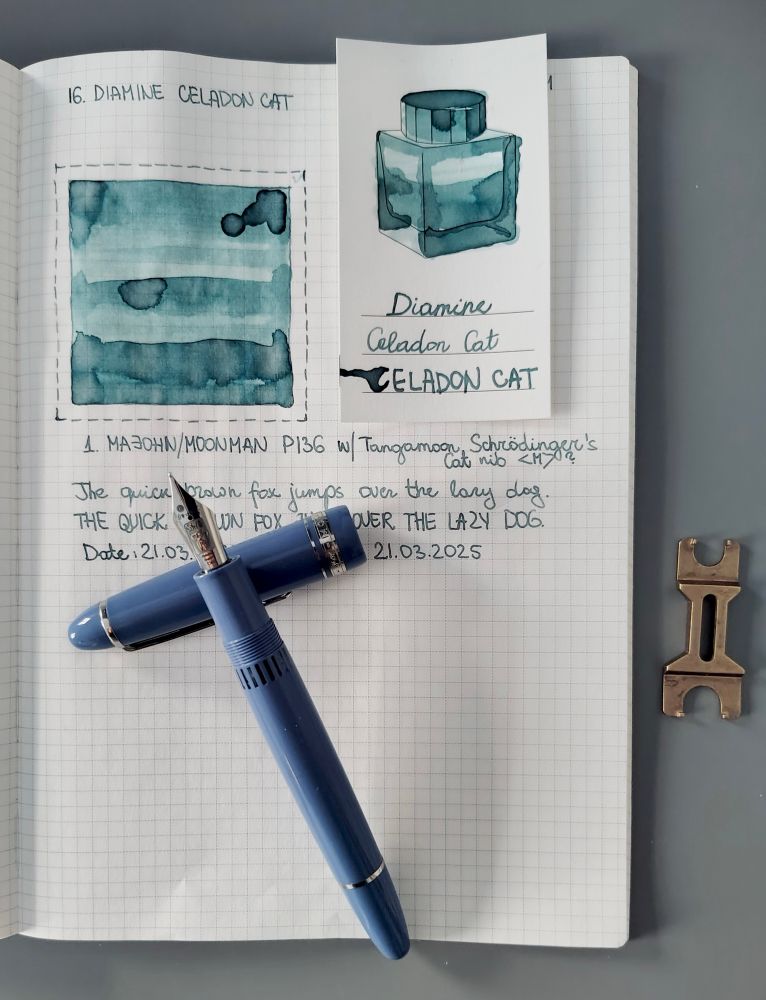 16. DIAMINE CELADON CAT
Diamine
Celadon Cat
CELADON CAT
1. MAJOHN/MOONMAN P136 w/ Tangamoon Schrödinger's
Cat nib <M> ?
The quick brown fox jumps over the lazy dog.
THE QUICK FOX OVER THE LAZY DOG.
Date: 21.03. 21.03.2025